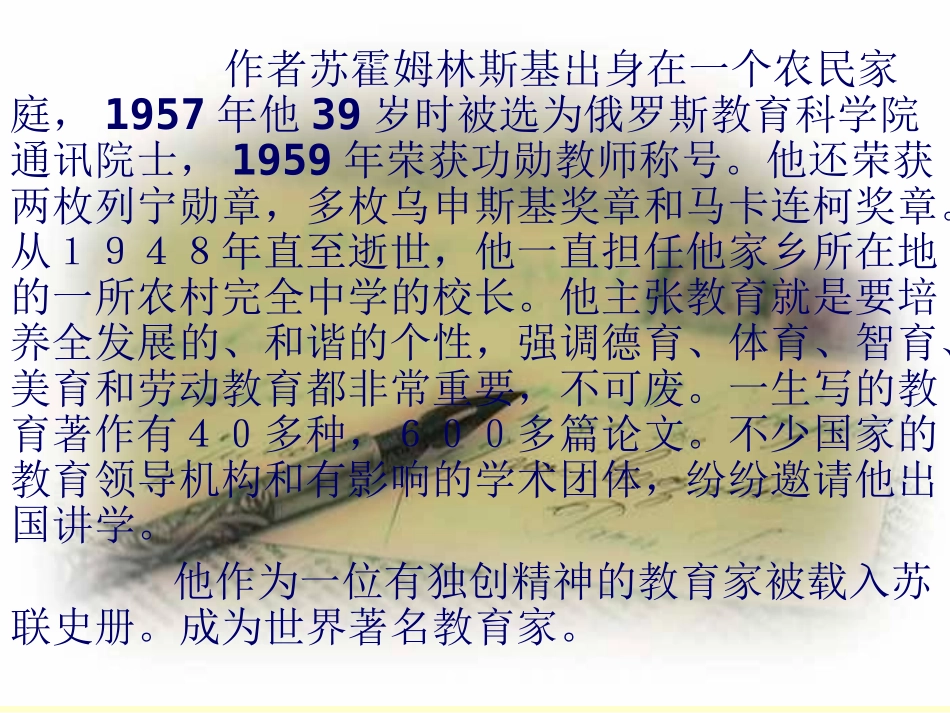 作者苏霍姆林斯基出身在一个农民家
庭， 1957 年他 39 岁时被选为俄罗斯教育科学院
通讯院士， 1959 年荣获功勋教师称号。他还荣获
两枚列宁勋章，多枚乌申斯基奖章和马卡连柯奖章。
从１９４８年直至逝世，他一直担任他家乡所在地
的一所农村完全中学的校长。他主张教育就是要培
养全发展的、和谐的个性，强调德育、体育、智育、
美育和劳动教育都非常重要，不可废。一生写的教
育著作有４０多种，６００多篇论文。不少国家的
教育领导机构和有影响的学术团体，纷纷邀请他出
国讲学。
他作为一位有独创精神的教育家被载入苏
联史册。成为世界著名教育家。